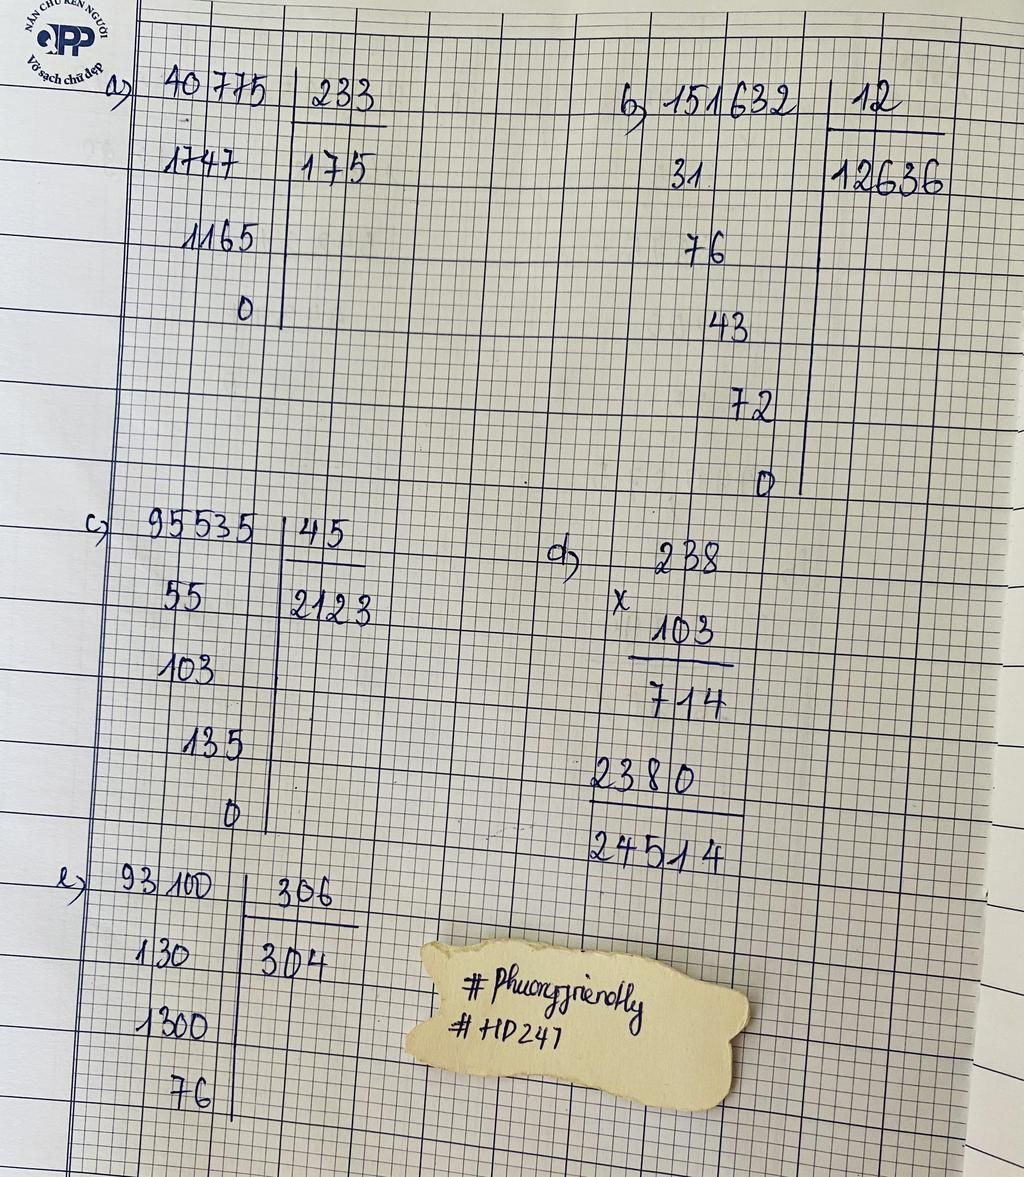 NẮN CHỮ RÈN NGƯỜI
QPP
Vở sạch chữ đẹp
a) 40775 233
1747 175
1165
0
b) 151632 12
31 12636
76
43
72
0
c) 95535 45
55 2123
103
135
0
d) 238
x
103
714
2380
24514
e) 93100 306
130 304
1300
76
#Phuongfriendly
#HD247